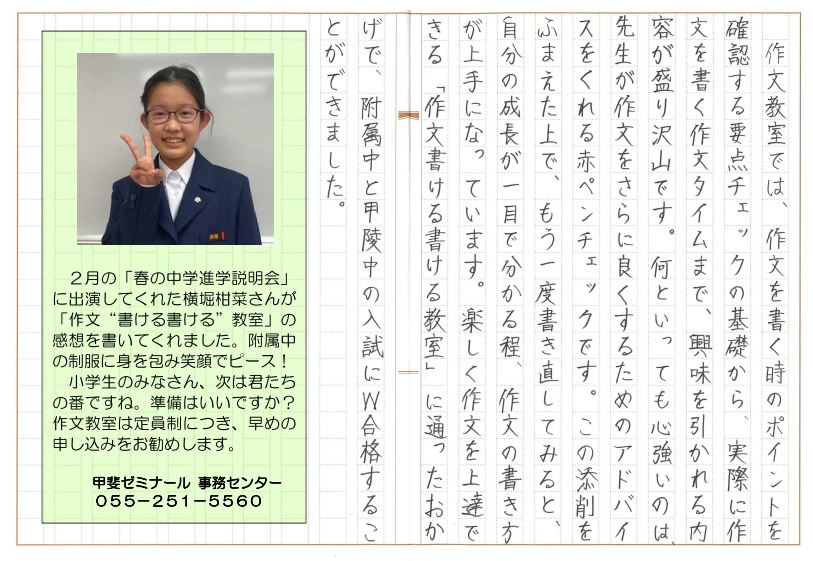 作文教室では、作文を書く時のポイントを
確認する要点チェックの基礎から、実際に作
文を書く作文タイムまで、興味を引かれる内
容が盛り沢山です。何といっても心強いのは、
先生が作文をさらに良くするためのアドバイ
スをくれる赤ペンチェックです。この添削を
ふまえた上で、もう一度書き直してみると、
自分の成長が一目で分かる程、作文の書き方
が上手になっています。楽しく作文を上達で
きる「作文書ける書ける教室」に通ったおか
げで、附属中と甲陵中の入試にW合格するこ
とができました。
２月の「春の中学進学説明会」
に出演してくれた横堀柑菜さんが
「作文“書ける書ける”教室」の
感想を書いてくれました。附属中
の制服に身を包み笑顔でピース！
小学生のみなさん、次は君たち
の番ですね。準備はいいですか？
作文教室は定員制につき、早めの
申し込みをお勧めします。
甲斐ゼミナール 事務センター
０５５－２５１－５５６０